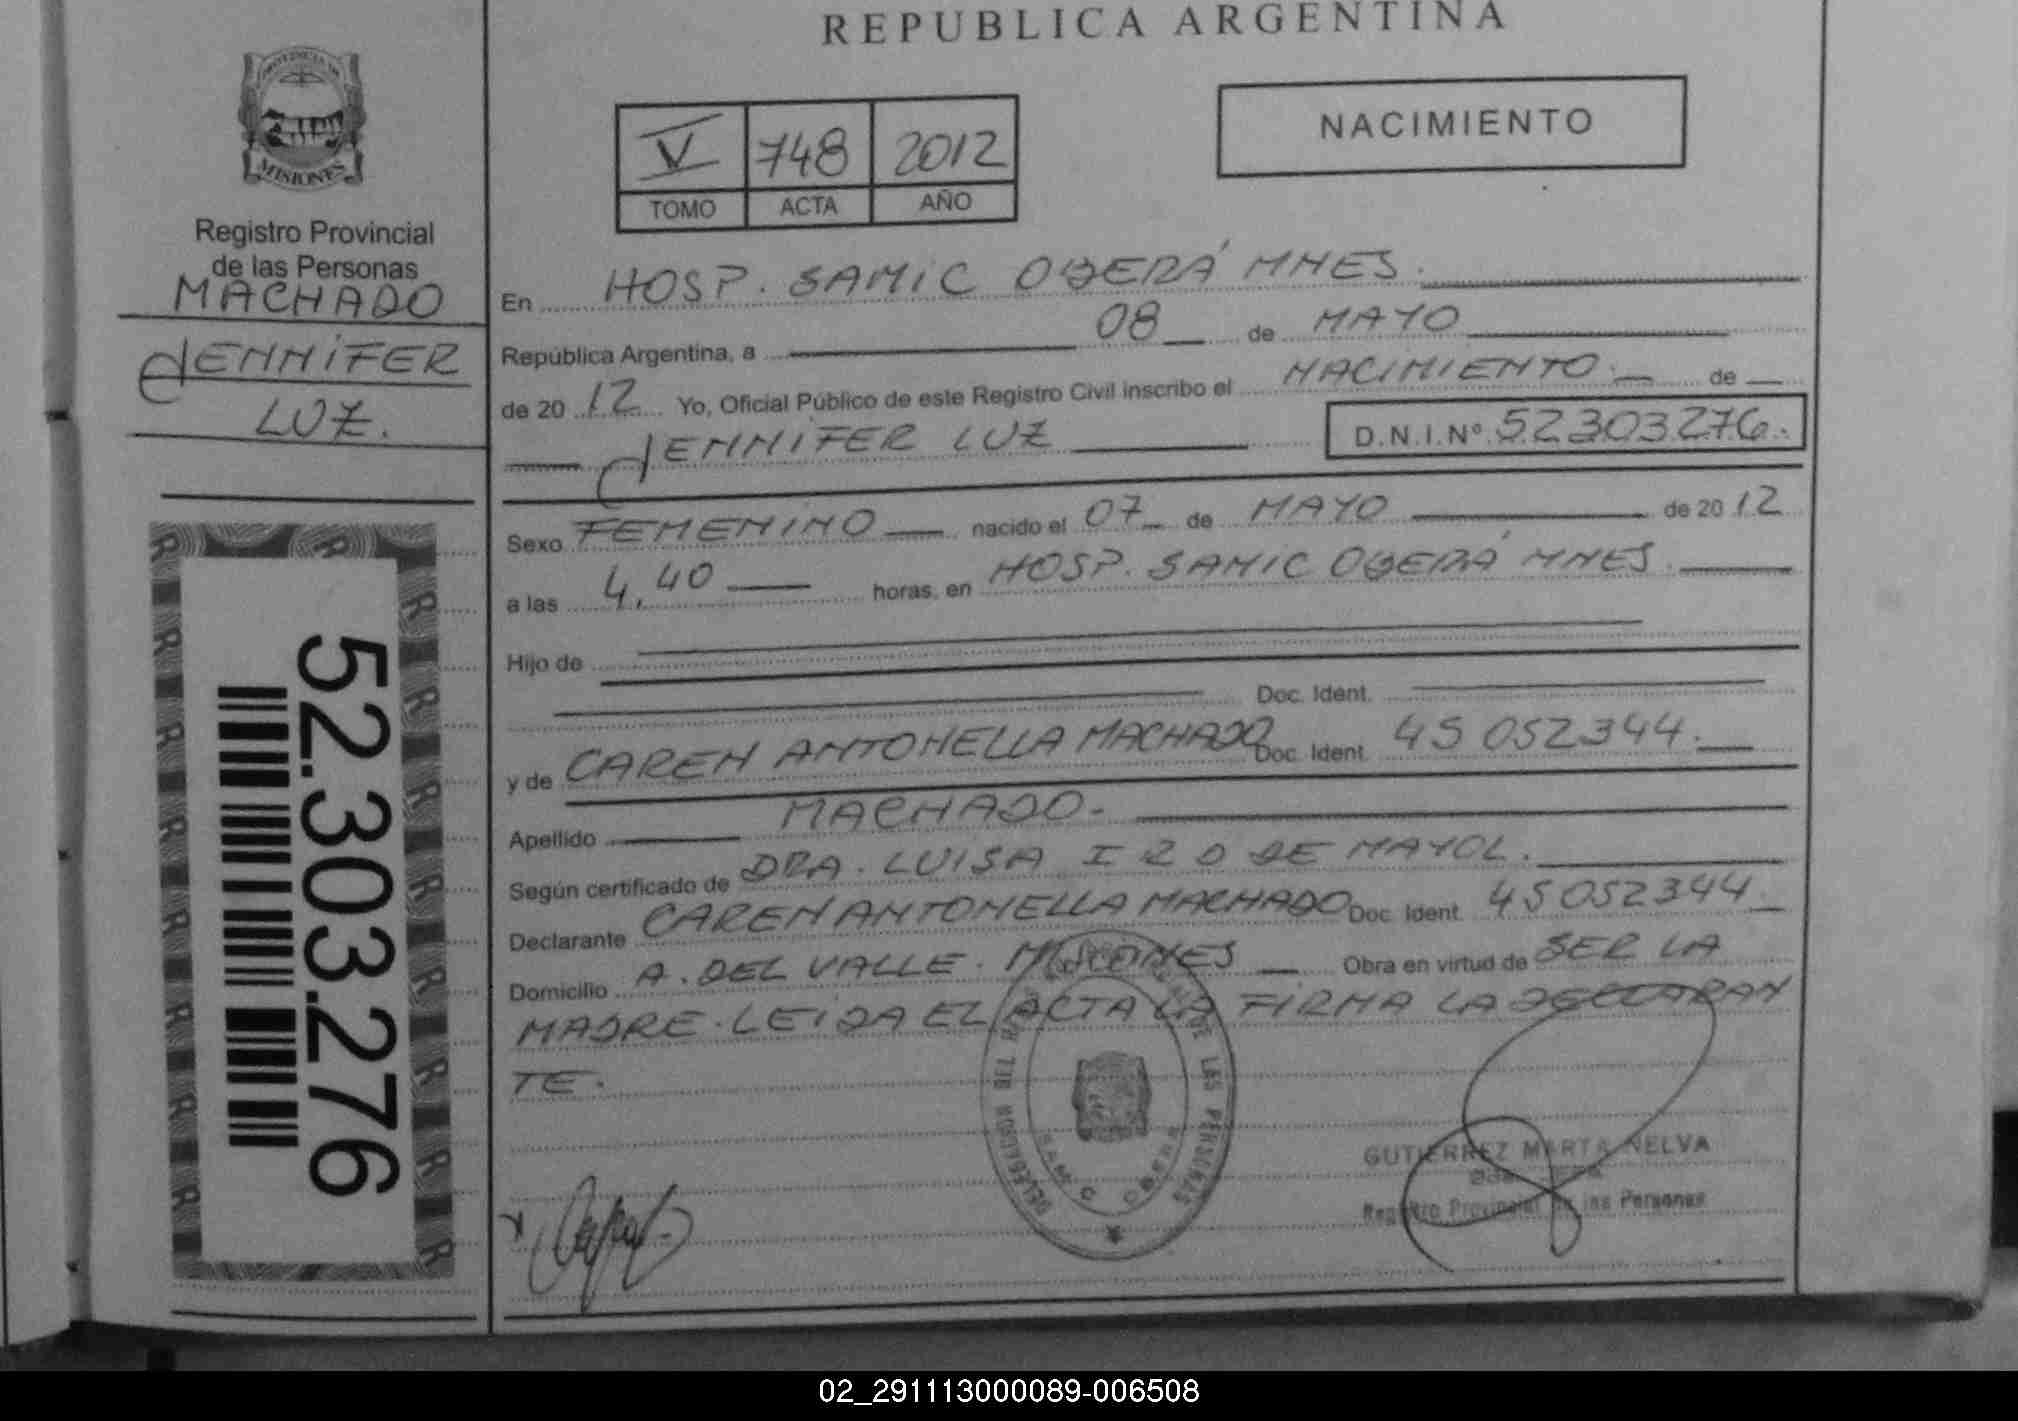 REPUBLICA ARGENTINA
PROVINCIA DE
MISIONES
Registro Provincial
de las Personas
MACHADO
JENNIFER
LUZ.
52.303.276
V 748 2012
TOMO ACTA AÑO
NACIMIENTO
En HOSP. SAMIC OBERÁ MNES.
República Argentina, a 08 de MAYO
de 2012 Yo, Oficial Público de este Registro Civil inscribo el NACIMIENTO. de
JENNIFER LUZ D.N.I.Nº 52303276.
Sexo FEMENINO nacido el 07 de MAYO de 2012
a las 4,40 horas, en HOSP. SAMIC OBERÁ MNES.
Hijo de
Doc. Ident.
y de CAREN ANTONELLA MACHADO Doc. Ident. 45 052344.
Apellido MACHADO.
Según certificado de DRA. LUISA DE MAYOL.
Declarante CAREN ANTONELLA MACHADO Doc. Ident. 45052344.
Domicilio A. DEL VALLE. MISIONES Obra en virtud de SER LA
MADRE. LEIDA EL ACTA LA FIRMA LA DECLARAN
TE.
DELEGACION DEL DE LAS PERSONAS
GUTIERREZ MARTA NELVA
Registro Provincial de las Personas
02_291113000089-006508